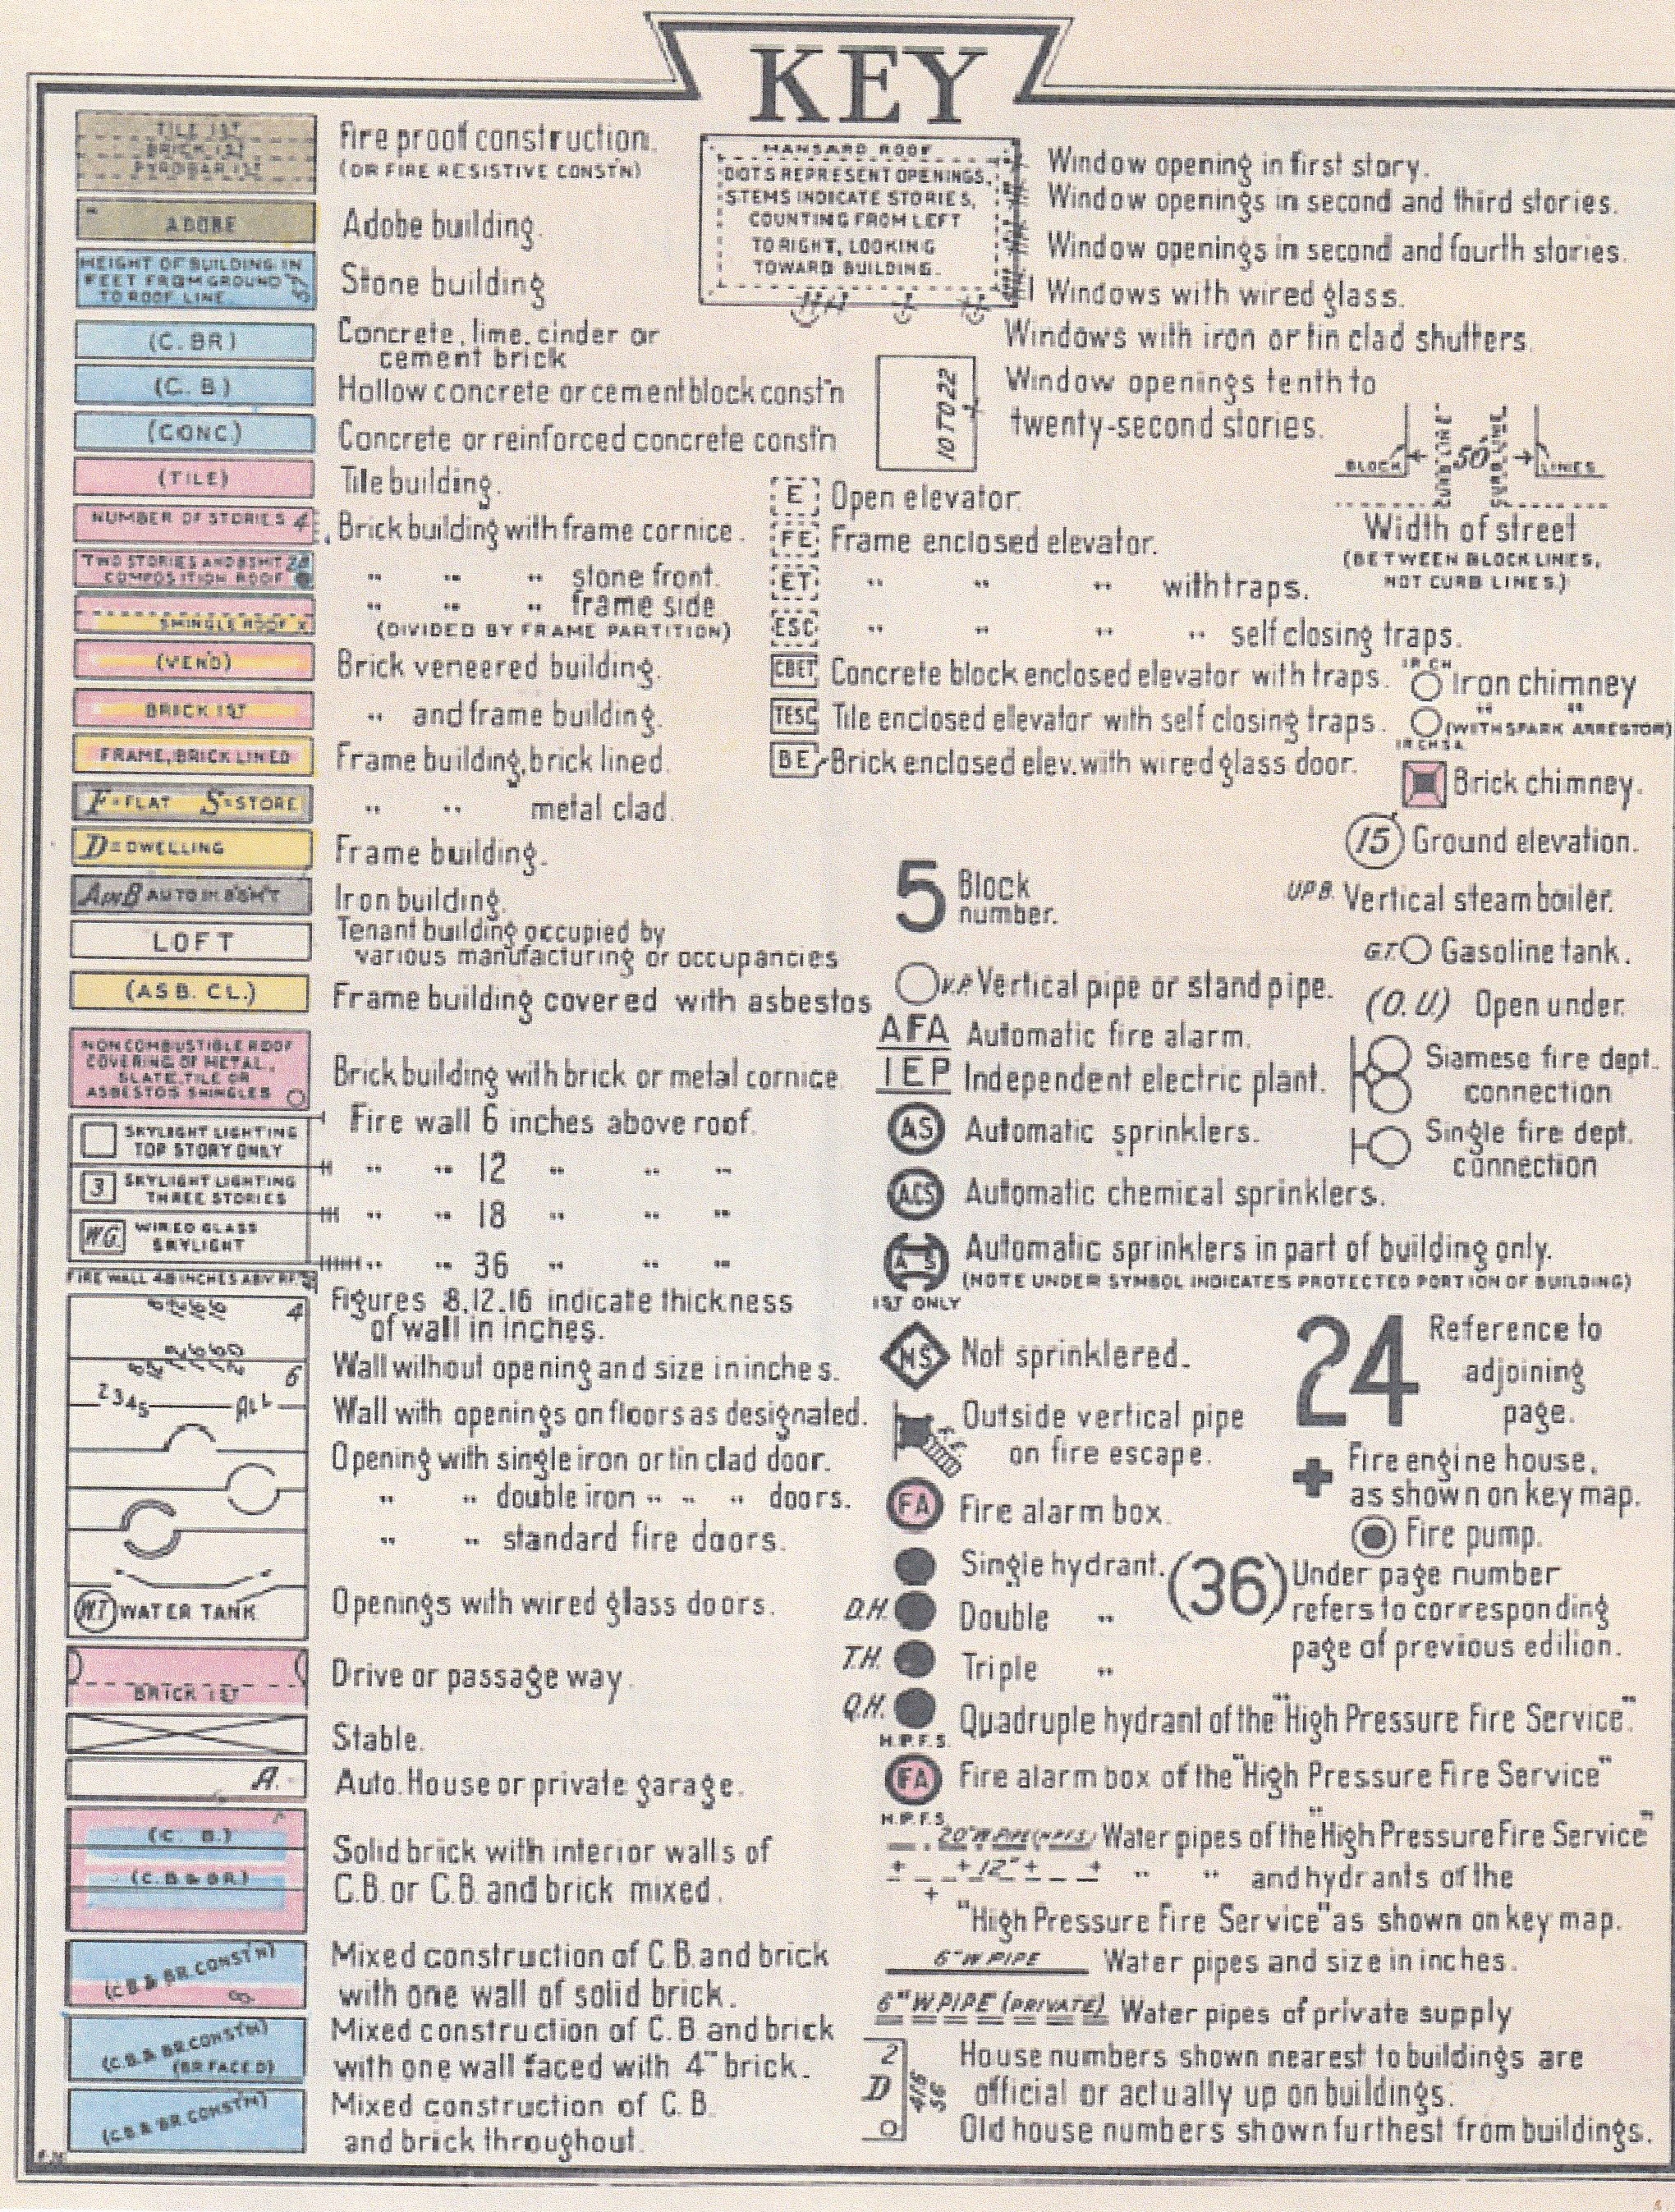 KEY
TILE 1ST
BRICK 1ST
PYROBAR 1ST
Fire proof construction.
(OR FIRE RESISTIVE CONST'N)
ADOBE
Adobe building.
HEIGHT OF BUILDING IN
FEET FROM GROUND
TO ROOF LINE
Stone building
(C. BR)
Concrete, lime, cinder or
cement brick
(C. B.)
Hollow concrete or cement block const'n
(CONC.)
Concrete or reinforced concrete const'n
(TILE)
Tile building.
NUMBER OF STORIES 4
Brick building with frame cornice.
TWO STORIES AND BSMT 2B
COMPOSITION ROOF
" " " stone front.
" " " frame side
SHINGLE ROOF X
(DIVIDED BY FRAME PARTITION)
(VEN'D)
Brick veneered building.
BRICK 1ST
" and frame building.
FRAME, BRICK LINED
Frame building, brick lined.
F=FLAT S=STORE
" " metal clad.
D=DWELLING
Frame building.
A IN B AUTO IN BSM'T
Iron building.
LOFT
Tenant building occupied by
various manufacturing or occupancies
(ASB. CL.)
Frame building covered with asbestos
NONCOMBUSTIBLE ROOF
COVERING OF METAL,
SLATE, TILE OR
ASBESTOS SHINGLES
Brick building with brick or metal cornice.
SKYLIGHT LIGHTING
TOP STORY ONLY
Fire wall 6 inches above roof.
" " 12 " " "
3 SKYLIGHT LIGHTING
THREE STORIES
" " 18 " " "
W.G. WIRED GLASS
SKYLIGHT
" " 36 " " "
FIRE WALL 48 INCHES ABV. RF.
4
Figures 8,12,16 indicate thickness
of wall in inches.
6
Wall without opening and size in inches.
2345 ALL
Wall with openings on floors as designated.
Opening with single iron or tin clad door.
" " double iron " " " doors.
" " standard fire doors.
W.T WATER TANK
Openings with wired glass doors.
BRICK 1ST
Drive or passage way.
Stable.
A.
Auto. House or private garage.
(C. B.)
(C. B & BR.)
Solid brick with interior walls of
C.B. or C.B. and brick mixed.
(C.B. & BR. CONST'N)
Mixed construction of C.B. and brick
with one wall of solid brick.
(C.B. & BR. CONST'N)
(BR. FACED)
Mixed construction of C.B. and brick
with one wall faced with 4" brick.
(C.B. & BR. CONST'N)
Mixed construction of C.B.
and brick throughout.
MANSARD ROOF
DOTS REPRESENT OPENINGS,
STEMS INDICATE STORIES,
COUNTING FROM LEFT
TO RIGHT, LOOKING
TOWARD BUILDING.
Window opening in first story.
Window openings in second and third stories.
Window openings in second and fourth stories.
Windows with wired glass.
Windows with iron or tin clad shutters.
10 TO 22
Window openings tenth to
twenty-second stories.
BLOCK CURB LINE 50' CURB LINE LINES
Width of street
(BETWEEN BLOCK LINES,
NOT CURB LINES.)
E Open elevator.
FE Frame enclosed elevator.
ET " " " with traps.
ESC " " " " self closing traps.
CBET Concrete block enclosed elevator with traps.
TESC Tile enclosed elevator with self closing traps.
BE Brick enclosed elev. with wired glass door.
IR. CH. Iron chimney
" " (WITH SPARK ARRESTOR)
IR. CH. S.A.
Brick chimney.
15 Ground elevation.
5 Block
number.
U.P.B. Vertical steam boiler.
G.T. Gasoline tank.
V.P. Vertical pipe or stand pipe.
(O. U.) Open under.
AFA Automatic fire alarm.
IEP Independent electric plant.
Siamese fire dept.
connection
AS Automatic sprinklers.
Single fire dept.
connection
ACS Automatic chemical sprinklers.
A S Automatic sprinklers in part of building only.
(NOTE UNDER SYMBOL INDICATES PROTECTED PORTION OF BUILDING)
1ST ONLY
NS Not sprinklered.
24 Reference to
adjoining
page.
Outside vertical pipe
on fire escape.
Fire engine house,
as shown on key map.
FA Fire alarm box.
Fire pump.
Single hydrant.
(36) Under page number
refers to corresponding
page of previous edition.
D.H. Double "
T.H. Triple "
Q.H. Quadruple hydrant of the "High Pressure Fire Service".
H.P.F.S.
FA Fire alarm box of the "High Pressure Fire Service"
H.P.F.S.
20" W. PIPE (H.P.F.S.) Water pipes of the "High Pressure Fire Service"
12" " " and hydrants of the
"High Pressure Fire Service" as shown on key map.
6" W. PIPE Water pipes and size in inches.
6" W. PIPE (PRIVATE) Water pipes of private supply
2
D
O
House numbers shown nearest to buildings are
official or actually up on buildings.
Old house numbers shown furthest from buildings.